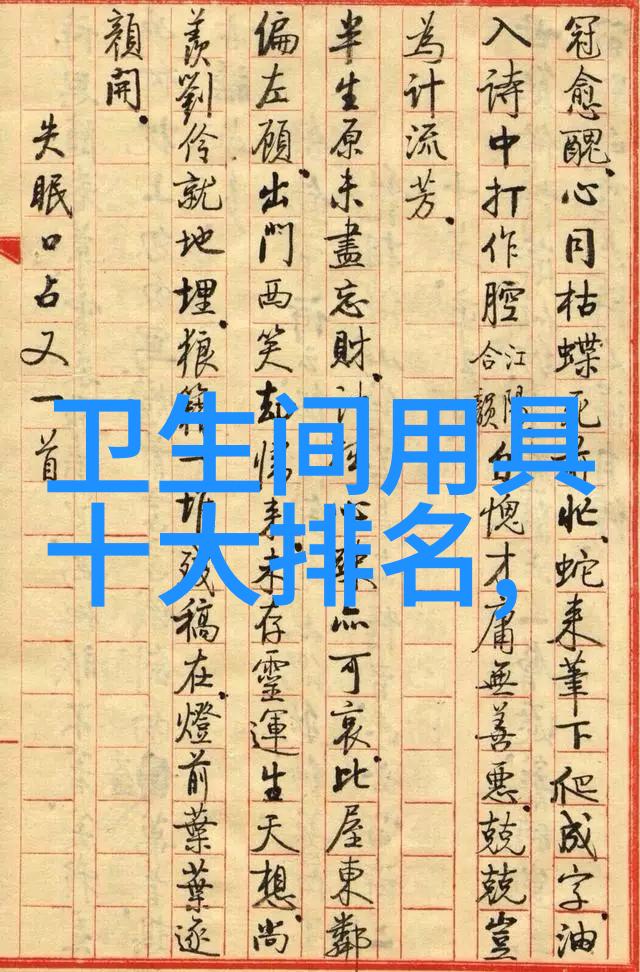 冠愈醜、心同枯蝶死前忙、蛇来筆下爬成字、油
入詩中打作腔江陽合韻自愧才庸無善惡、兢兢豈
為計流芳。
半生原未盡忘財、計心亦可哀。比屋東鄰
偏左顧、出門西笑却慵来、未存靈運生天想、尚
羨劉伶就地埋。狼籍一堆殘稿在、燈前葉葉逐
顏開。
失眠口占又一首
卫生间用具
十大排名,